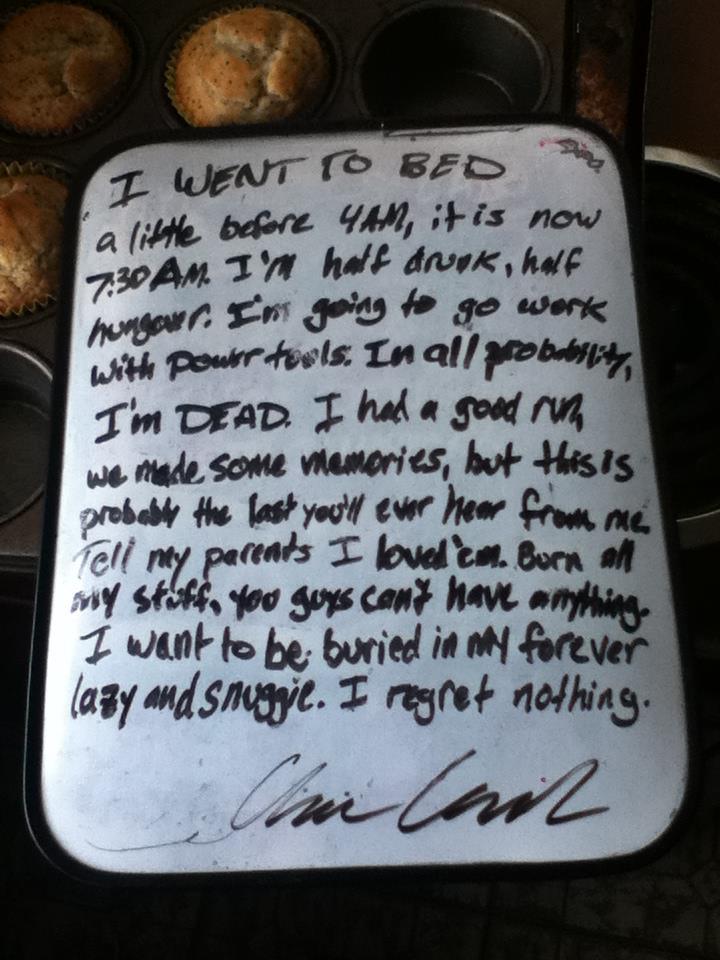 I WENT TO BED
a little before 4AM, it is now
7:30 AM. I'm half drunk, half
hungover. I'm going to go work
with power tools. In all probability,
I'm DEAD. I had a good run,
we made some memories, but this is
probably the last you'll ever hear from me.
Tell my parents I loved 'em. Burn all
my stuff, you guys can't have anything.
I want to be buried in my forever
lazy and snuggie. I regret nothing.